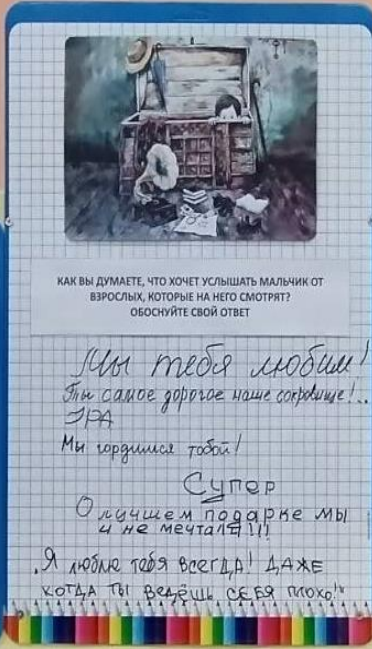 КАК ВЫ ДУМАЕТЕ, ЧТО ХОЧЕТ УСЛЫШАТЬ МАЛЬЧИК ОТ
ВЗРОСЛЫХ, КОТОРЫЕ НА НЕГО СМОТРЯТ?
ОБОСНУЙТЕ СВОЙ ОТВЕТ
Мы тебя любим!
Ты самое дорогое наше сокровище!..
УРА
Мы гордимся тобой!
Супер
О лучшем подарке мы
и не мечтали!!!
„Я люблю тебя всегда! ДАЖЕ
КОГДА ТЫ ВЕДЁШЬ СЕБЯ плохо!"